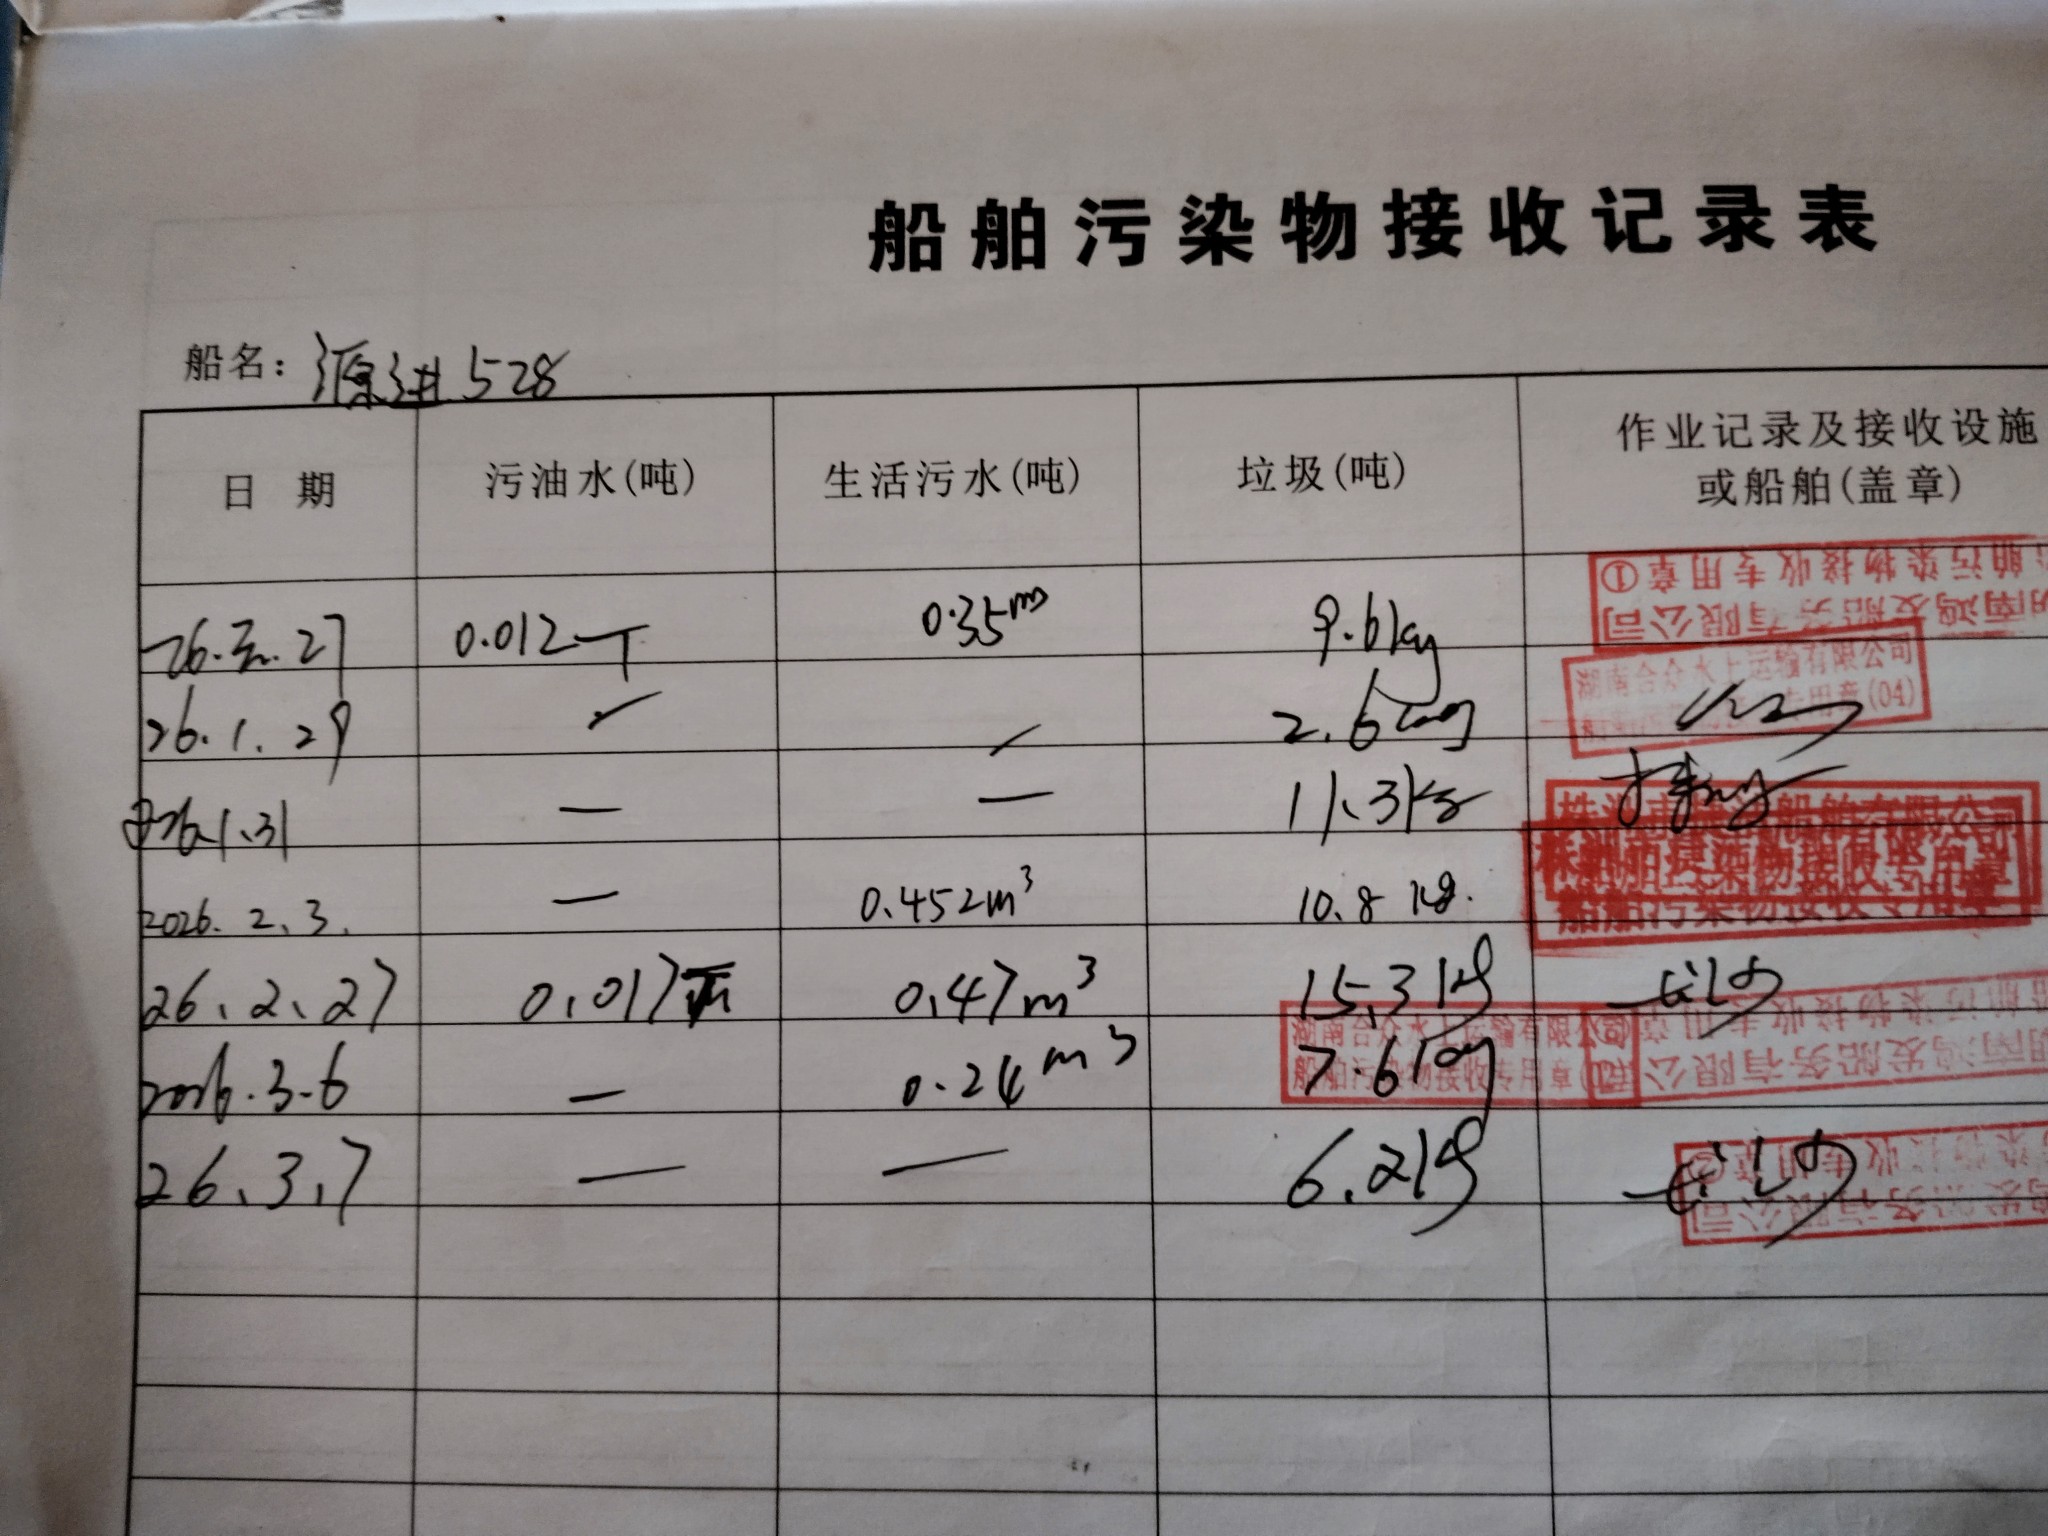 船舶污染物接收记录表
船名: 源进528
日 期 污油水(吨) 生活污水(吨) 垃圾(吨) 作业记录及接收设施
或船舶(盖章)
26. .27 0.012 0.35m³ 9.6kg
船舶污染物接收专用章①
湖南鸿发船务有限公司
26.1.29 2.6kg
湖南合众水上运输有限公司
专用章(04)
26.1.31 — — 11.3kg
2026.2.3. — 0.452m³ 10.8kg.
船舶污染物接收专用章
26.2.27 0.017 0.47m³ 15.3kg
湖南合众水上运输有限公司
船舶污染物接收专用章
船舶污染物接收专用章
湖南鸿发船务有限公司
2026.3.6 — 0.24m³ 7.6kg
26.3.7 — — 6.2kg